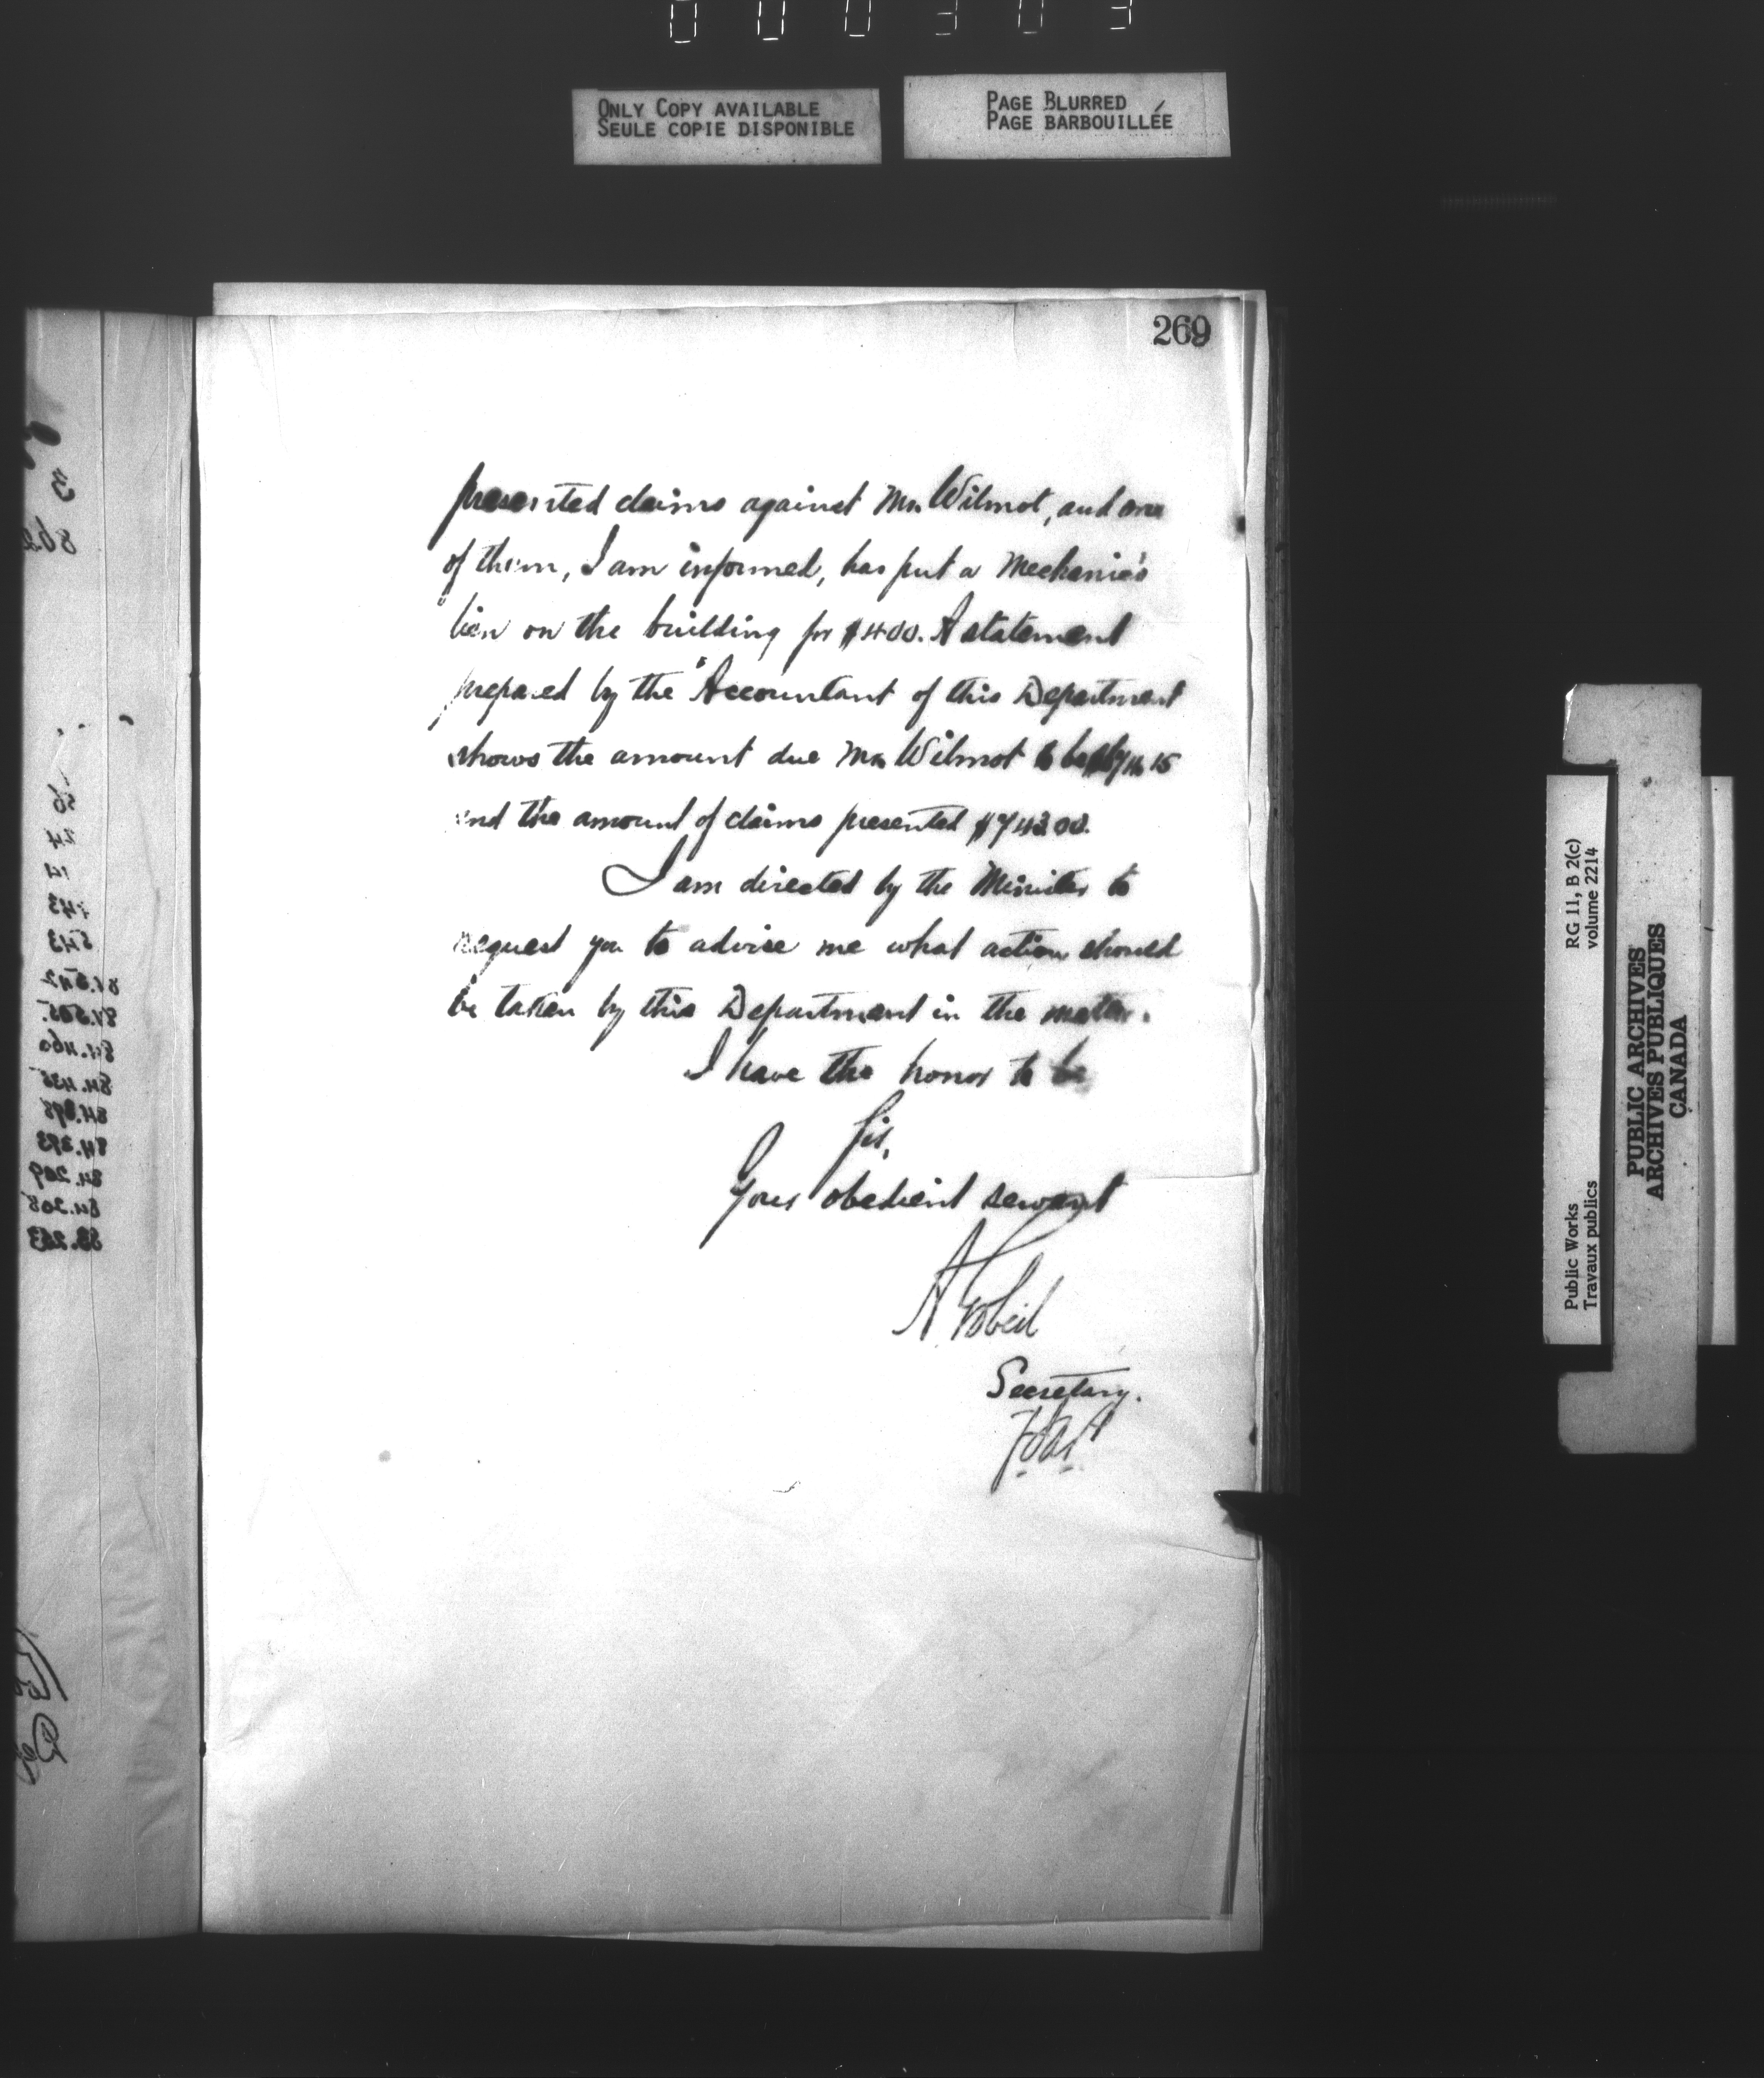 000303
ONLY COPY AVAILABLE
SEULE COPIE DISPONIBLE
PAGE BLURRED
PAGE BARBOUILLÉE
269
presented claims against Mr. Wilmot, and one
of them, I am informed, has put a Mechanic's
lien on the building for $400. A statement
prepared by the Accountant of this Department
shows the amount due Mr. Wilmot to be
and the amount of claims presented $743.00.
I am directed by the Minister to
request you to advise me what action should
be taken by this Department in the matter.
I have the honor to be
Sir,
Your obedient servant
A Gobeil
Secretary.
3
862
24
543
84.542
84.505
84.460
84.438
84.398
84.393
84.209
84.208
83.253
RG 11, B 2(c)
volume 2214
Public Works
Travaux publics
PUBLIC ARCHIVES
ARCHIVES PUBLIQUES
CANADA